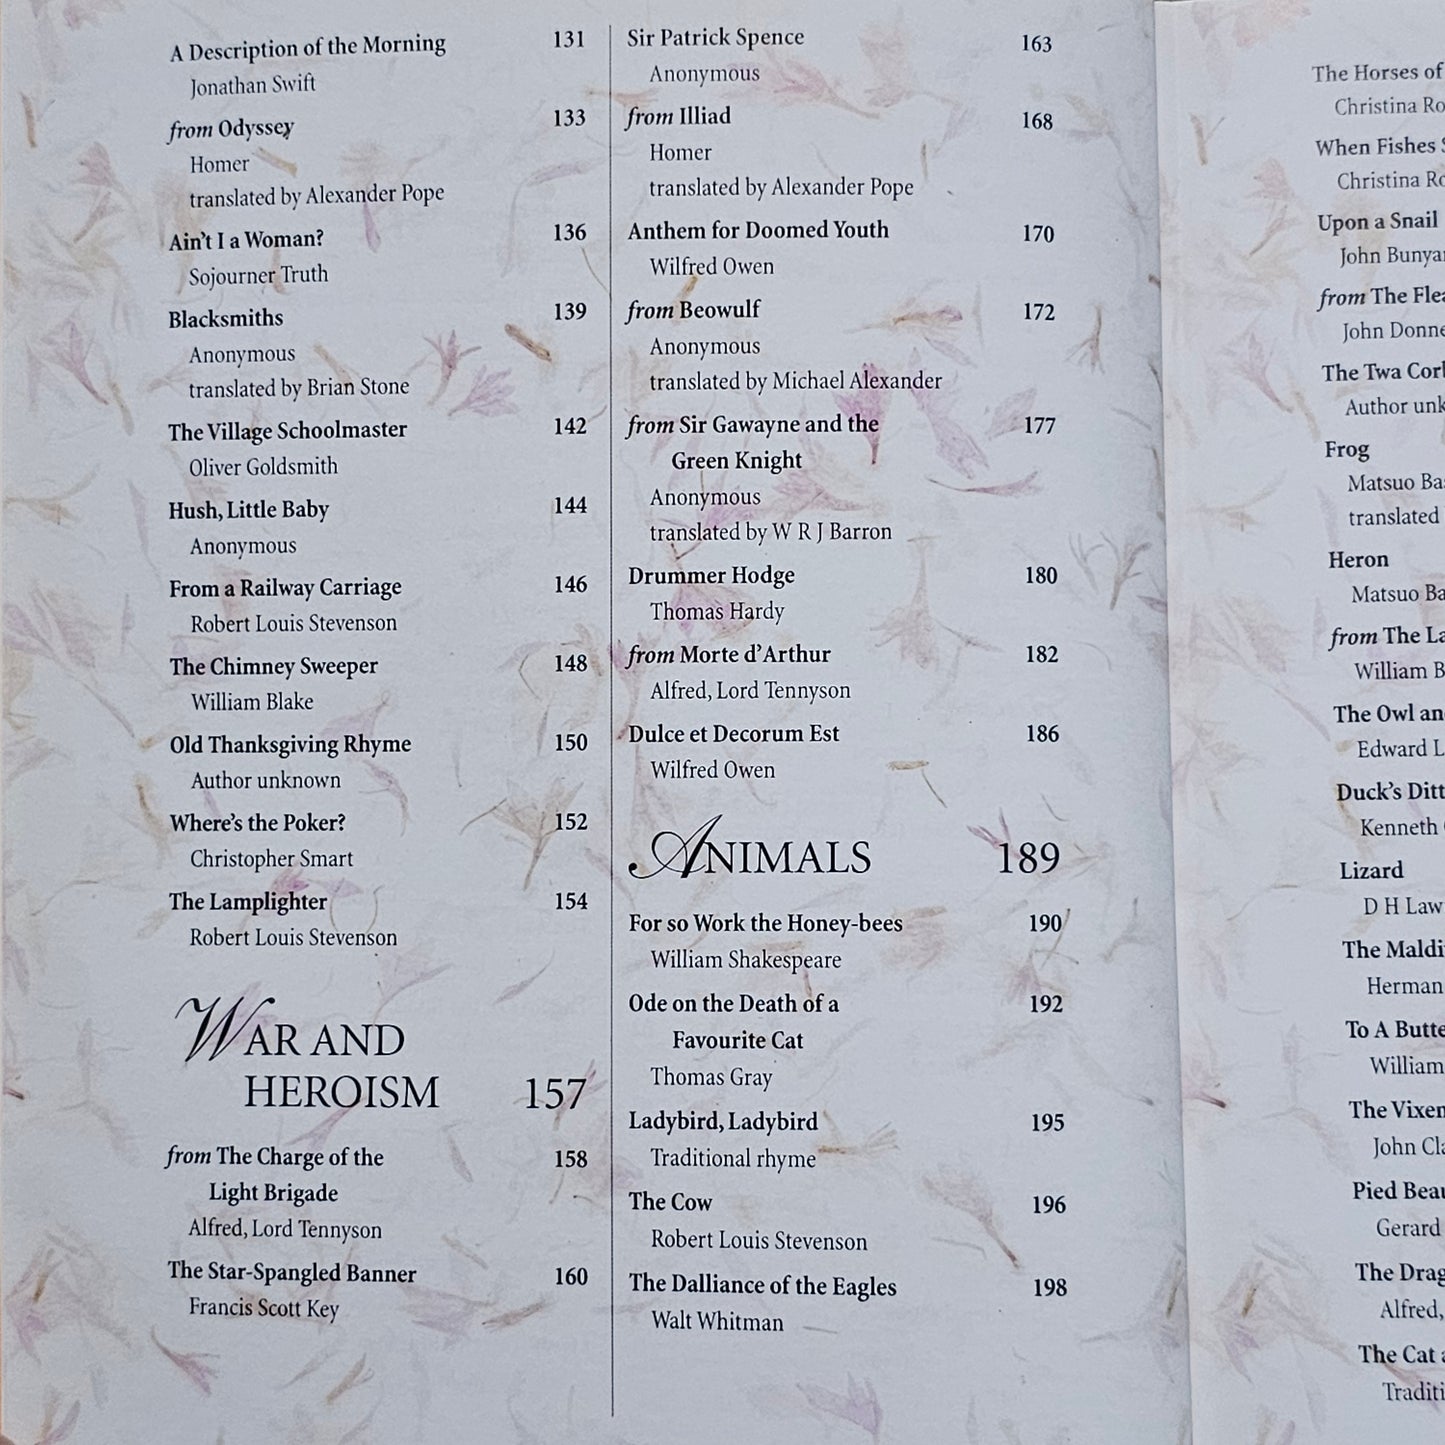 A Description of the Morning 131
Jonathan Swift
from Odyssey 133
Homer
translated by Alexander Pope
Ain't I a Woman? 136
Sojourner Truth
Blacksmiths 139
Anonymous
translated by Brian Stone
The Village Schoolmaster 142
Oliver Goldsmith
Hush, Little Baby 144
Anonymous
From a Railway Carriage 146
Robert Louis Stevenson
The Chimney Sweeper 148
William Blake
Old Thanksgiving Rhyme 150
Author unknown
Where's the Poker? 152
Christopher Smart
The Lamplighter 154
Robert Louis Stevenson
WAR AND
HEROISM 157
from The Charge of the 158
Light Brigade
Alfred, Lord Tennyson
The Star-Spangled Banner 160
Francis Scott Key
Sir Patrick Spence 163
Anonymous
from Illiad 168
Homer
translated by Alexander Pope
Anthem for Doomed Youth 170
Wilfred Owen
from Beowulf 172
Anonymous
translated by Michael Alexander
from Sir Gawayne and the 177
Green Knight
Anonymous
translated by W R J Barron
Drummer Hodge 180
Thomas Hardy
from Morte d'Arthur 182
Alfred, Lord Tennyson
Dulce et Decorum Est 186
Wilfred Owen
ANIMALS 189
For so Work the Honey-bees 190
William Shakespeare
Ode on the Death of a 192
Favourite Cat
Thomas Gray
Ladybird, Ladybird 195
Traditional rhyme
The Cow 196
Robert Louis Stevenson
The Dalliance of the Eagles 198
Walt Whitman
The Horses of
Christina
When Fishes
Christina
Upon a Snail
John
from The
John Donne
The Twa
Author
Frog
Matsuo
translated
Heron
Matsuo
from The
William
The Owl
Edward
Duck's
Kenneth
Lizard
D H
The
Herman
To A
William
The Vixen
John
Pied
Gerard
The
Alfred,
The Cat